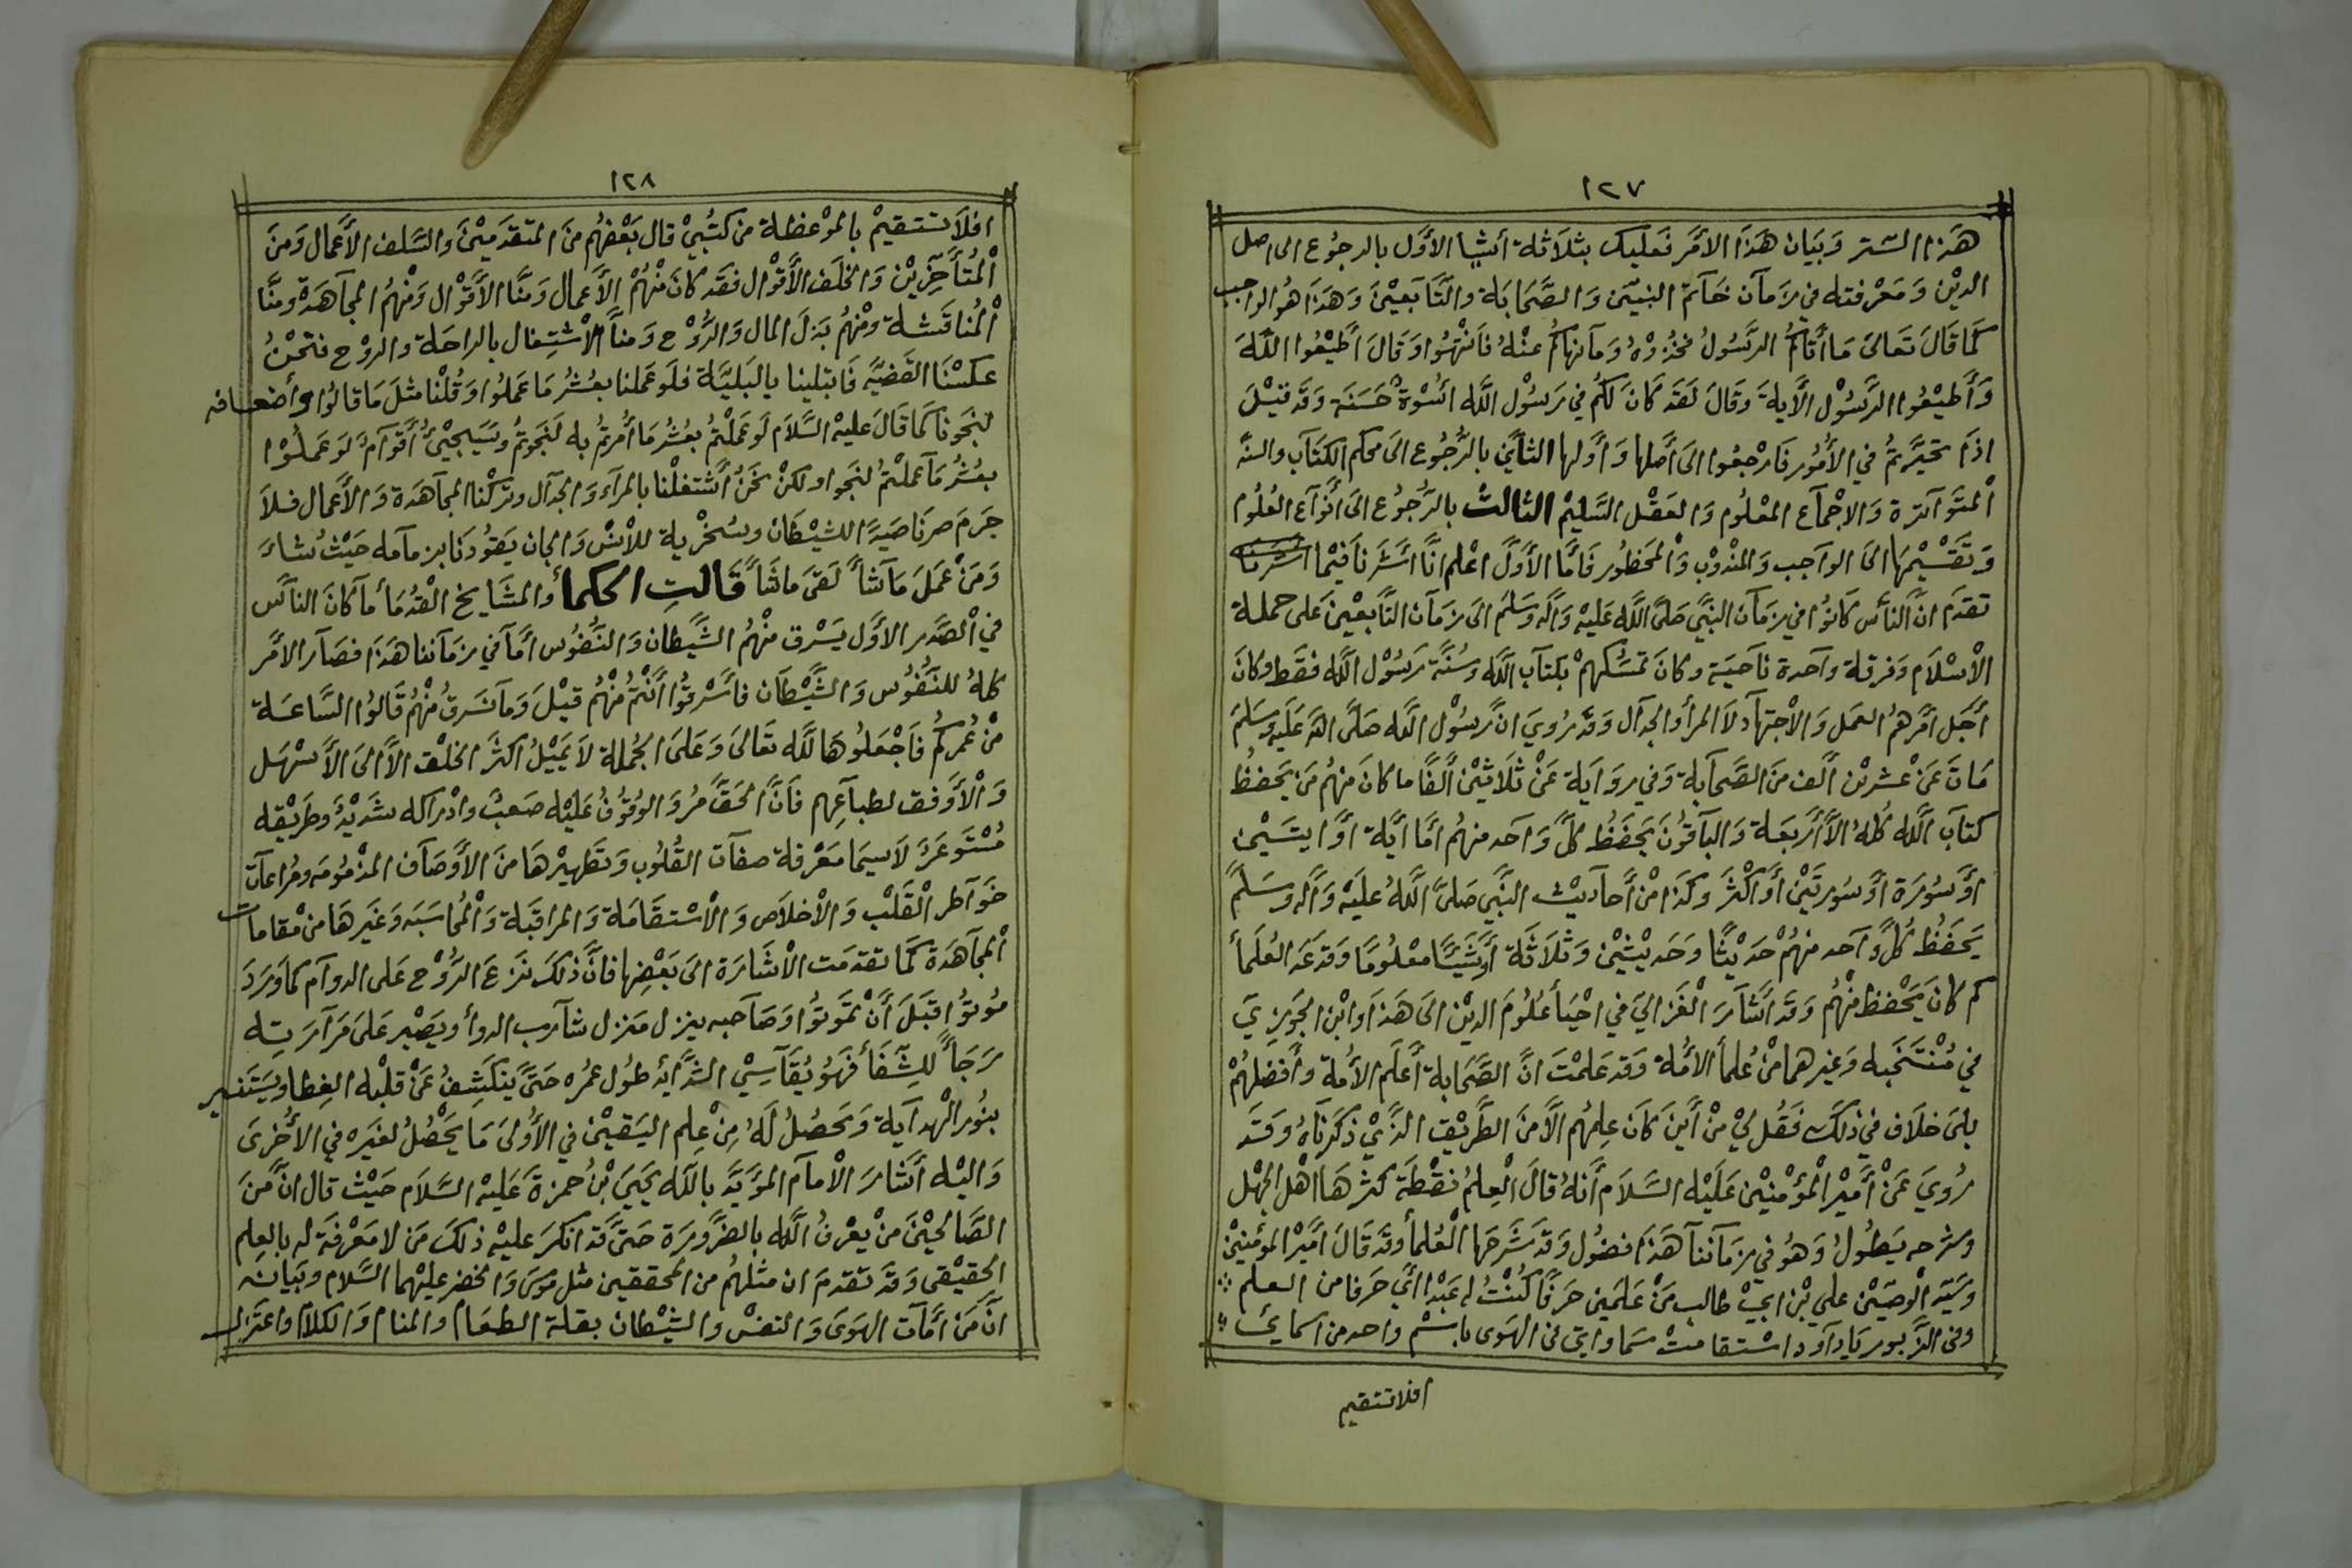 ١٢٧
هَذا السّتر وَبَيان هَذَا الأمْر فعَليك بثلَاثة أشيأ الأوّل بالرجُوع الى اصل
الدِيْن وَمَعْرفته في زَمَان خَاتم النبيّن وَالصَّحَابَة والتَّابعيْن وَهَذا هُو الواجب
كمَا قَالَ تَعَالىَ مَا أتاكُم الرَّسُولُ فخُذوْهُ وَمَا نهاكُم عنْهُ فَانْتهُوا وَقَالَ أطيْعُوا اللهَ
وَأطيْعُوا الرَّسُوْل الأية وقَالَ لقَد كَانَ لكُم في رَسُوْل الله أسْوَةٌ حَسَنَة وَقد قيْلَ
اذا تحيّرتُم في الأمُور فَارْجعُوا الىَ أصلها وَأوّلها الثاني بالرُّجُوع الىَ محكم الكتَاب والسنّه
المتَوَاترة وَالإجْمَاع المعْلُوم وَالعَقْل السَّليْم الثالث بالرُّجُوع الىَ أنْوَاع العُلُوم
وَتَقسْيْمهَا الىَ الوَاجب وَالمنْدُوْب وَالمَحْظُور فَأمّا الأوّل اعْلم انّا اشَرنَا فيْما
تقدَم انّ النّاس كَانُوا في زَمَان النبيّ صَلىّ اللهَ عَليْه وَآله وَسَلم الىَ زمَان التَّابعيْن عَلى حملة
الإسْلَام وَفرقة واحدة ناحيَة وكانَ تمسّكهمْ بكتاب الله وسُنّة رَسُوْل الله فقط وكانَ
أجَل امْرهمُ العَمل وَالاجتهَاد لاَ المرأ والجدَال وَقد رُويَ انَّ رَسُوْل الله صَلىّ الله عَليه وسَلم
مَاتَ عَنْ عشرْين ألف منَ الصَّحَابة وَفي روَاية عَنْ ثلَاثيْن ألفًا ما كانَ منهُم مَن يَحفظُ
كتَاب الله كُلهُ الاّ أرْبعَة وَالبَاقُونَ يَحفَظُ كلّ وَاحد منهُم امَّا أيَة أوْ ايتَيْن
أوْ سُورَة أوْ سُورتَيْن أوْ اكْثرَ وكذا منْ أحَاديْث النبيّ صَلىّ اللهُ عليْه وَآله وسَلمّ
يَحفَظُ كُلّ وَاحد منهُمْ حَديْثًا وَحَديْثيْن وَثلَاثَة أوْ شَيئًا معْلُومًا وَقد عَدّ العُلمَأ
كم كانَ يَحْفظ منْهُم وَقد أشارَ الغَزالي في احْيَأ عُلُومَ الدِيْن الىَ هَذا وَابْن الجَوزيّ
في مُنْتَخبه وَغيرهما منْ عُلمأ الأمّة وَقد عَلمْتَ انَّ الصَّحَابة أعْلم الأمّة وأفضلهُمْ
بلىَ خلَاف في ذلكَ فقُل ليْ منْ أيْنَ كانَ عِلمهُم الاّ منَ الطّريْق الذّيْ ذكَرنَاهُ وَقد
رُويَ عَنْ أميْر المؤْمنيْن عَليْه السَّلَام أنهُ قالَ العِلمُ نقْطة كثرهَا اهْل الجَهْل
وشرحه يَطُولُ وَهُو في زمَاننا هَذا فضُول وَقد شَرَحَها العُلمأ وقد قَالَ اميْر المؤْمنيْن
وَسَيّد الوصيّيْن علي بْن ابيْ طالب مَنْ عَلمَني حَرفًا كُنْتُ له عَبْدا ايّ حَرفا من العلم
وفى الزّبور يَا دَاوُد اسْتقامتْ سَماواتى فى الهَوى باسْم واحد من اسمائى
افلا تستقيم
١٢٨
افلاَ تستقيمْ بالموْعظة من كتُبيْ قال بَعْضهُم منَ المتقدّميْن والسَّلف الأعمال وَمنَ
المُتأخّريْن وَالخلَف الأقْوَال فقد كانَ منْهُمْ الأعمال وَمنّا الأقوْال وَمنْهُم المجَاهَدة ومنّا
المُناقشة ومْنهُم بَذلَ المال وَالرُّوْح وَمنا الإشْتغال بالراحَة والروْح فنحْنُ
عكسْنا القضيّه فَابتلينا بالبَليّة فلَو عَملنا بعُشُر مَا عَملُوا وَقُلْنا مثلَ مَا قالوُا وأضعافه
لنجَونا كمَا قَالَ عليْه السَّلاَم لَو عَملْتُم بعُشُر مَا أمُرتُم به لنجَوتُم وَسَيجيْئُ أقوامٌ لَو عَملُوا
بعُشُر مَا عملْتُم لنَجوا ولكنْ نحَنُ أشتغلْنا بالمرآء وَالجدَال وتركْنا المجَاهَدة وَالأعمال فلاَ
جَرَمَ صرنَا صَيدًا للشيْطان وسُخْرية للإنْس وَالجان يَقوُدنَا بزمَامه حَيْثُ شاءَ
وَمَنْ عَملَ مَا شأ لقىَ مَا شأ قَالتِ الحكمأ وَالمشَايخ القُدمَأ ما كانَ الناس
في الصّدر الأوّل يَسْرق منْهُم الشّيْطان وَالنّفُوس أمّا في زمَاننا هَذا فصَار الأمْر
كلهُ للنّفُوس وَالشّيْطان فأسْرقُوا أنْتُم منْهُم قيْلَ وَمَا نَسرقُ منْهُم قَالوُا السَّاعَة
منْ عُمركُم فَاجْعَلُوهَا لله تَعَالىَ وَعَلىَ الجُملة لاَ يَميْلُ اكثرُ الخلْق الاّ الىَ الأسْهَل
وَالأوْفق لطبَاعِهم فَانّ الحَقّ مُرّ وَالوُقُوفُ عَليْه صَعبٌ وادْراكه شَديْدٌ وطريْقه
مُسْتوعَرٌ لاَسيمَا مَعْرفة صفات القُلوب وَتطهيرْهَا منَ الأوْصَاف المذْمُومَه ومُراعات
خوَاطر القَلْب وَالأخلاَص وَالأسْتقَامَة وَالمراقبَة وَالمُحاسَبَه وَغَيرهَا منْ مقامات
المجَاهَدة كمَا تقدمَت الأشَارَة الىَ بَعْضِهَا فانّ ذلكَ نَزعَ الرُّوْح عَلى الدوَام كماَ وَرَدَ
مُوتُوا قبَلَ أنْ تمَوتُوا وَصَاحبه ينزل مَنزل شَارب الدوأ ويَصْبر عَلىَ مَرَارَته
رَجَأً للشِّفَأ فهُو يُقَاسِيْ الشدَائد طُول عمُره حَتىّ ينكَشِفُ عَنْ قلبْه الغِطا ويَستنير
بنُور الهدَاية وَيَحصُلُ لهُ مِنْ عِلم اليَقيْن في الأوْلىَ مَا يَحْصُلُ لغَيْره في الأخْرىَ
وَاليْه أشَارَ الأمَام المؤَيّد بالله يَحيىَ بْنُ حمزةَ عَليْه السَّلاَم حَيْثُ قال انّ منَ
الصَّالحيْنَ منْ يعْرفُ الله بالضرَّورَة حَتىّ قد انكَرَ عليْه ذلكَ مَن لا مَعْرفَة له بالعِلم
الحقيْقى وَقد تقدمَ ان مثلهُم من المحققين مثل مُوسىَ وَالخضر عليْهما السَّلام وبَيانه
انّ مَنْ أمَات الهَوىَ وَالنفسْ والشيْطان بقلة الطعَام والمنام وَالكلام واعتزال